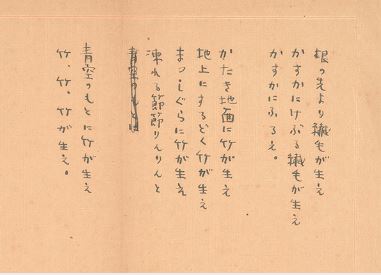 根の先より繊毛が生え
かすかにけぶる繊毛が生え
かすかにふるえ。
かたき地面に竹が生え
地上にするどく竹が生え
まつしぐらに竹が生え
凍れる節節りんりんと
青空のもとは
青空のもとに竹が生え
竹、竹、竹が生え。